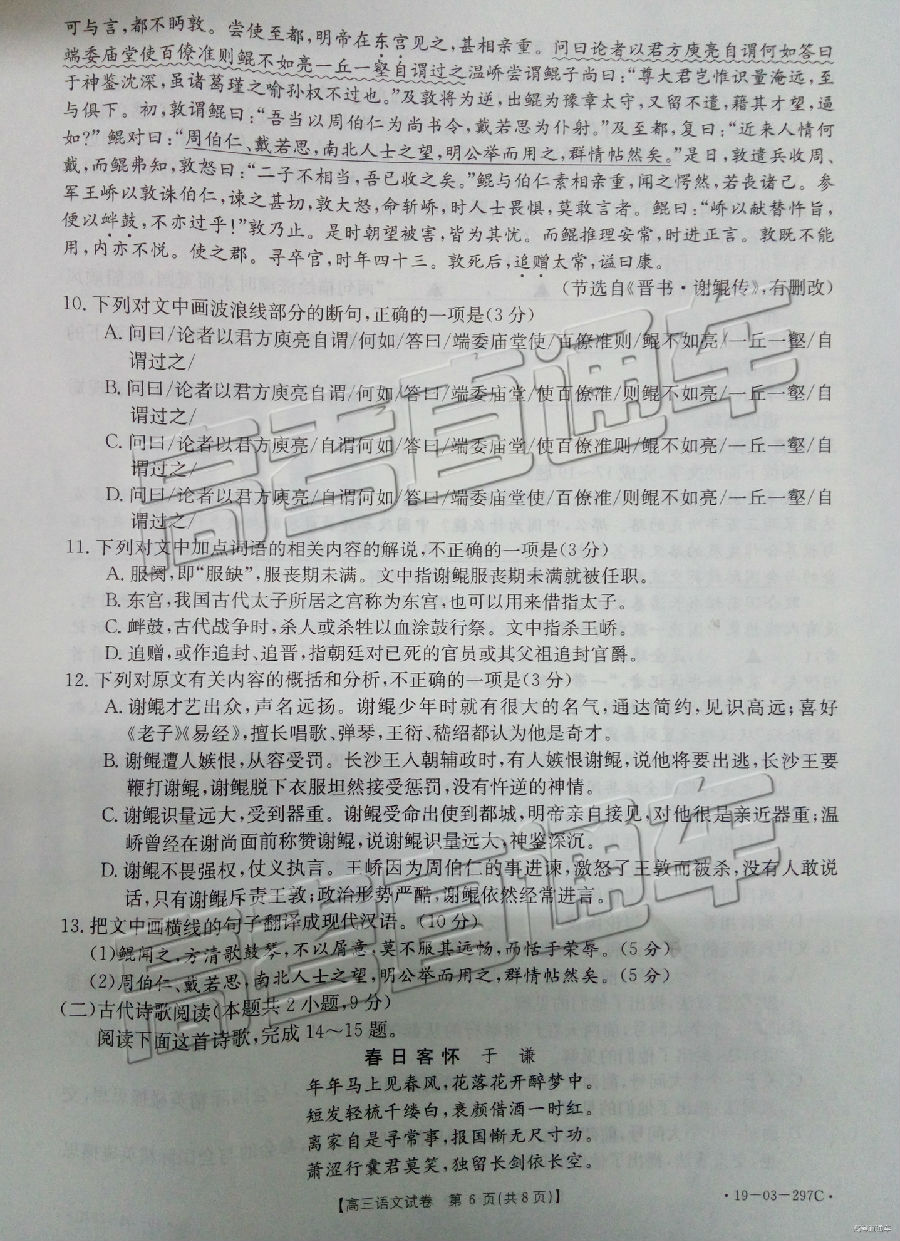 可与言，都不眄敦。尝使至都，明帝在东宫见之，甚相亲重。问曰论者以君方庾亮自谓何如答曰
端委庙堂使百僚准则鲲不如亮一丘一壑自谓过之温峤尝谓鲲子尚曰：“尊大君岂惟识量淹远，至
于神鉴沈深，虽诸葛瑾之喻孙权不过也。”及敦将为逆，出鲲为豫章太守，又留不遣，藉其才望，逼
与俱下。初，敦谓鲲曰：“吾当以周伯仁为尚书令，戴若思为仆射。”及至都，复曰：“近来人情何
如？”鲲对曰：“周伯仁、戴若思，南北人士之望，明公举而用之，群情帖然矣。”是日，敦遣兵收周、
戴，而鲲弗知，敦怒曰：“二子不相当，吾已收之矣。”鲲与伯仁素相亲重，闻之愕然，若丧诸己。参
军王峤以敦诛伯仁，谏之甚切，敦大怒，命斩峤，时人士畏惧，莫敢言者。鲲曰：“峤以献替忤旨，
便以衅鼓，不亦过乎！”敦乃止。是时朝望被害，皆为其忧。而鲲推理安常，时进正言。敦既不能
用，内亦不悦。使之郡。寻卒官，时年四十三。敦死后，追赠太常，谥曰康。
（节选自《晋书·谢鲲传》，有删改）
10. 下列对文中画波浪线部分的断句，正确的一项是（3 分）
A. 问曰/论者以君方庾亮自谓/何如/答曰/端委庙堂使/百僚准则/鲲不如亮/一丘一壑/自
谓过之/
B. 问曰/论者以君方庾亮自谓/何如/答曰/端委庙堂/使百僚准则/鲲不如亮/一丘一壑/自
谓过之/
C. 问曰/论者以君方庾亮/自谓何如/答曰/端委庙堂/使百僚准则/鲲不如亮/一丘一壑/自
谓过之/
D. 问曰/论者以君方庾亮/自谓何如/答曰/端委庙堂使/百僚准/则鲲不如亮/一丘一壑/自
谓过之/
11. 下列对文中加点词语的相关内容的解说，不正确的一项是（3 分）
A. 服阕，即“服缺”，服丧期未满。文中指谢鲲服丧期未满就被任职。
B. 东宫，我国古代太子所居之宫称为东宫，也可以用来借指太子。
C. 衅鼓，古代战争时，杀人或杀牲以血涂鼓行祭。文中指杀王峤。
D. 追赠，或作追封、追晋，指朝廷对已死的官员或其父祖追封官爵。
12. 下列对原文有关内容的概括和分析，不正确的一项是（3 分）
A. 谢鲲才艺出众，声名远扬。谢鲲少年时就有很大的名气，通达简约，见识高远；喜好
《老子》《易经》，擅长唱歌、弹琴，王衍、嵇绍都认为他是奇才。
B. 谢鲲遭人嫉恨，从容受罚。长沙王入朝辅政时，有人嫉恨谢鲲，说他将要出逃，长沙王要
鞭打谢鲲，谢鲲脱下衣服坦然接受惩罚，没有忤逆的神情。
C. 谢鲲识量远大，受到器重。谢鲲受命出使到都城，明帝亲自接见，对他很是亲近器重；温
峤曾经在谢尚面前称赞谢鲲，说谢鲲识量远大，神鉴深沉。
D. 谢鲲不畏强权，仗义执言。王峤因为周伯仁的事进谏，激怒了王敦而被杀，没有人敢说
话，只有谢鲲斥责王敦；政治形势严酷，谢鲲依然经常进言。
13. 把文中画横线的句子翻译成现代汉语。（10 分）
(1)鲲闻之，方清歌鼓琴，不以屑意，莫不服其远畅，而恬于荣辱。（5 分）
(2)周伯仁、戴若思，南北人士之望，明公举而用之，群情帖然矣。（5 分）
（二）古代诗歌阅读（本题共 2 小题，9 分）
阅读下面这首诗歌，完成 14～15 题。
春日客怀 于 谦
年年马上见春风，花落花开醉梦中。
短发轻梳千缕白，衰颜借酒一时红。
离家自是寻常事，报国惭无尺寸功。
萧涩行囊君莫笑，独留长剑依长空。
【高三语文试卷 第 6 页（共 8 页）】
·19－03－297C·
高考直通车
高考直通车